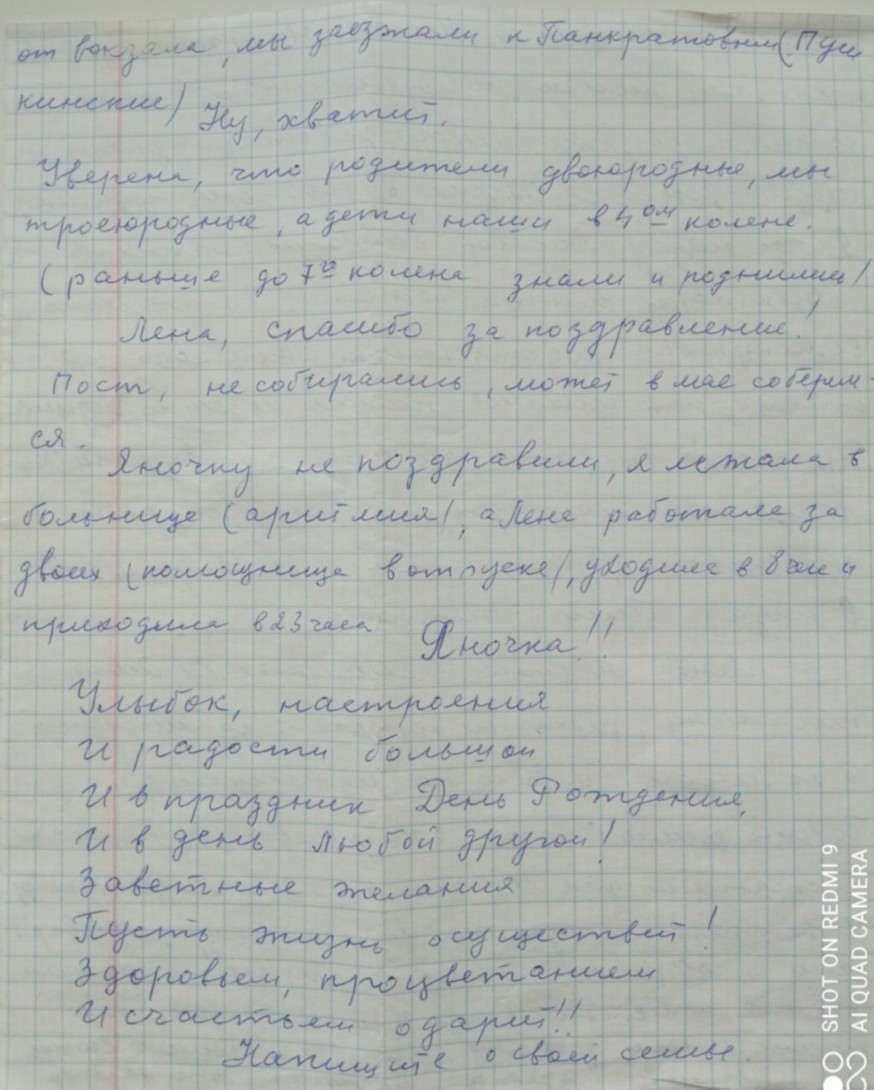 от вокзала, мы заезжали к Панкратовым (Пуш
кинские) Ну, хватит.
Уверена, что родители двоюродные, мы
троеюродные, а дети наши в 4ом колене.
(раньше до 7го колена знали и роднились)
Лена, спасибо за поздравление!
Пост, не собирались, может в мае соберем-
ся.
Яночку не поздравили, я лежала в
больнице (аритмия), а Лена работала за
двоих (помощница в отпуске), уходила в 8 час и
приходила в 23 часа
Яночка!!
Улыбок, настроения
И радости большой
И в праздник День Рождения,
И в день любой другой!
Заветные желания
Пусть жизнь осуществит!
Здоровьем, процветанием
И счастьем одарит!!
Напишите о своей семье.
SHOT ON REDMI 9
AI QUAD CAMERA